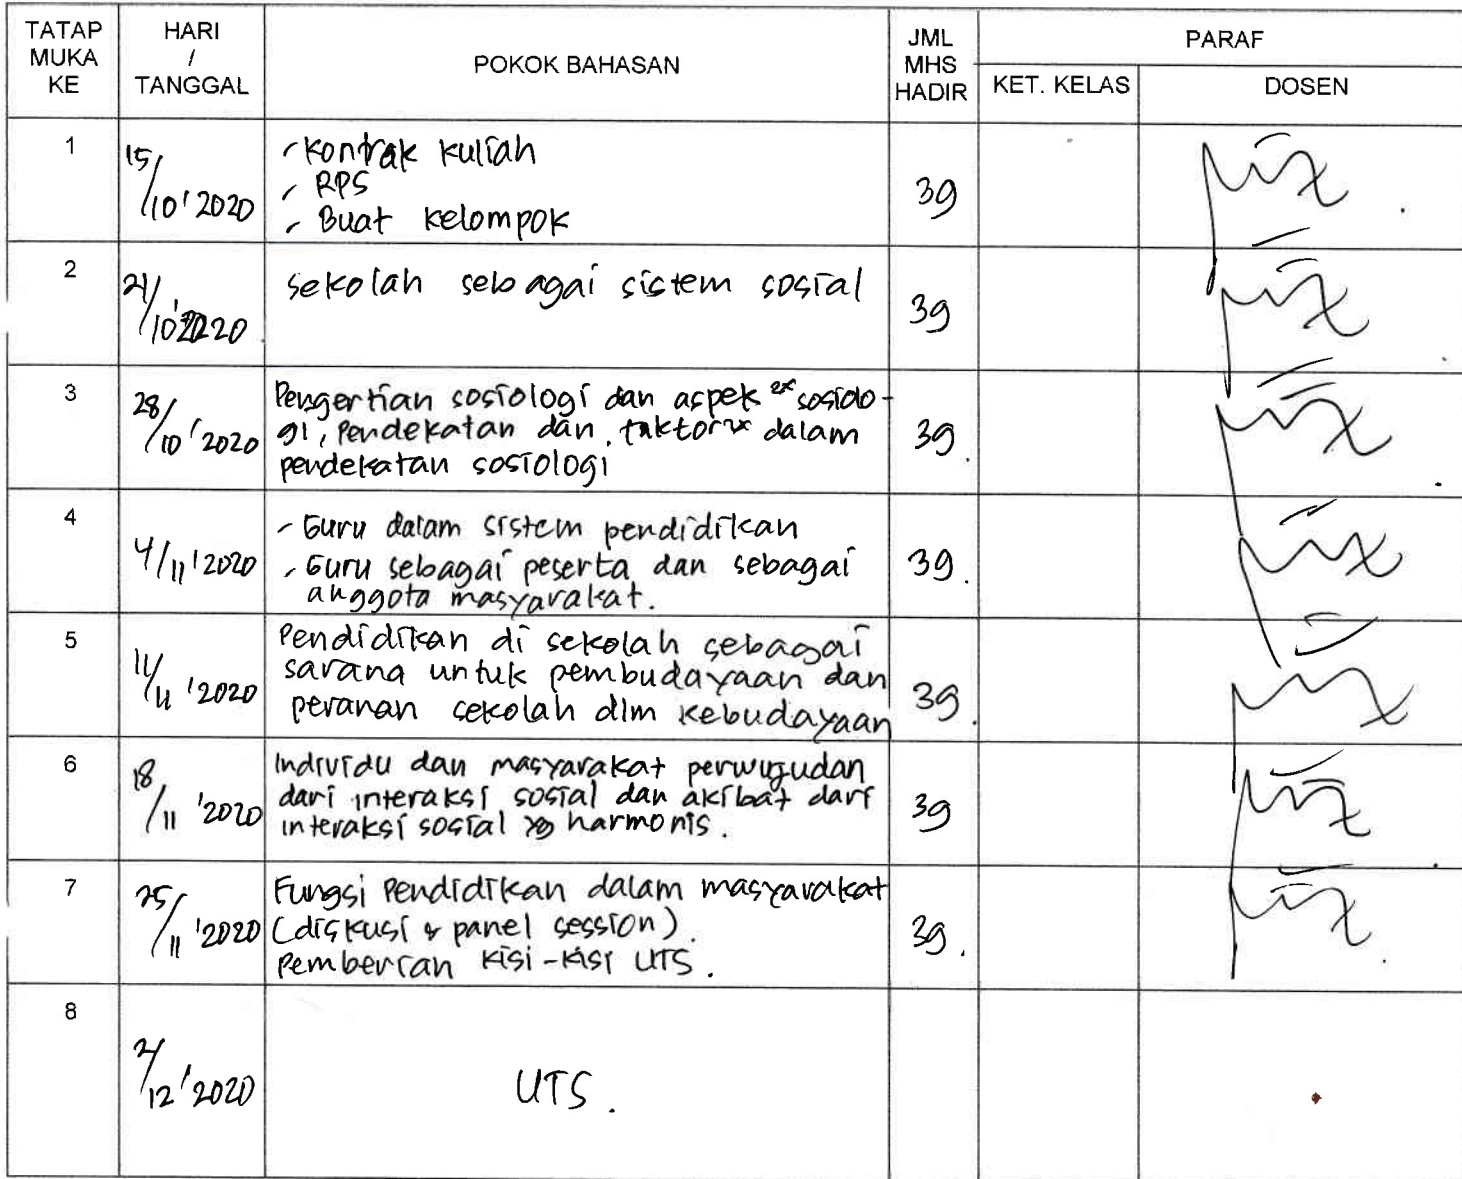 TATAP MUKA KE | HARI / TANGGAL | POKOK BAHASAN | JML MHS HADIR | PARAF
KET. KELAS | DOSEN
1 | 15/10'2020 | - Kontrak Kuliah | 39
- RPS
- Buat Kelompok
2 | 21/10'2020 | sekolah sebagai sistem sosial | 39
3 | 28/10'2020 | Pengertian sosiologi dan aspek 2x sosiolo- | 39.
gi, Pendekatan dan faktor2x dalam
pendekatan sosiologi
4 | 4/11'2020 | - Guru dalam sistem pendidikan | 39.
- Guru sebagai peserta dan sebagai
anggota masyarakat.
5 | 11/11'2020 | Pendidikan di sekolah sebagai | 39.
sarana untuk pembudayaan dan
peranan sekolah dlm kebudayaan
6 | 18/11'2020 | Individu dan masyarakat perwujudan | 39
dari interaksi sosial dan akibat dari
interaksi sosial yg harmonis.
7 | 25/11'2020 | Fungsi Pendidikan dalam masyarakat | 39.
(diskusi & panel session).
Pemberian kisi-kisi UTS.
8 | 2/12'2020 | UTS.